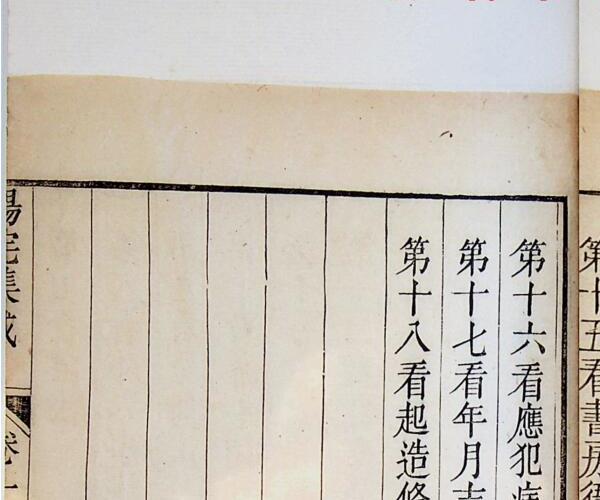 第十五看書房
第十六看應犯
第十七看年月
第十八看起造修
陽宅集成
卷